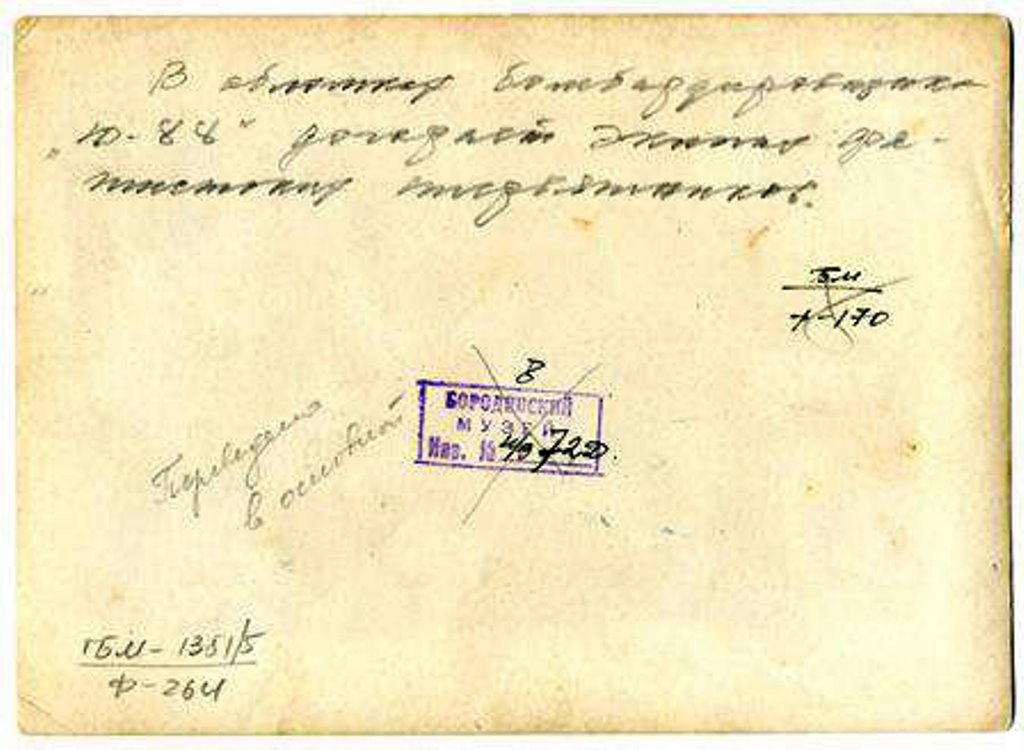 В обломках бомбардировщика
„Ю-88“ догорает экипаж фа-
шистских стервятников.
БМ
Ф-170
В
БОРОДИНСКИЙ
МУЗЕЙ
Инв. № н/в 722.
Переведено
в основной
ГБМ - 1351/5
Ф-264